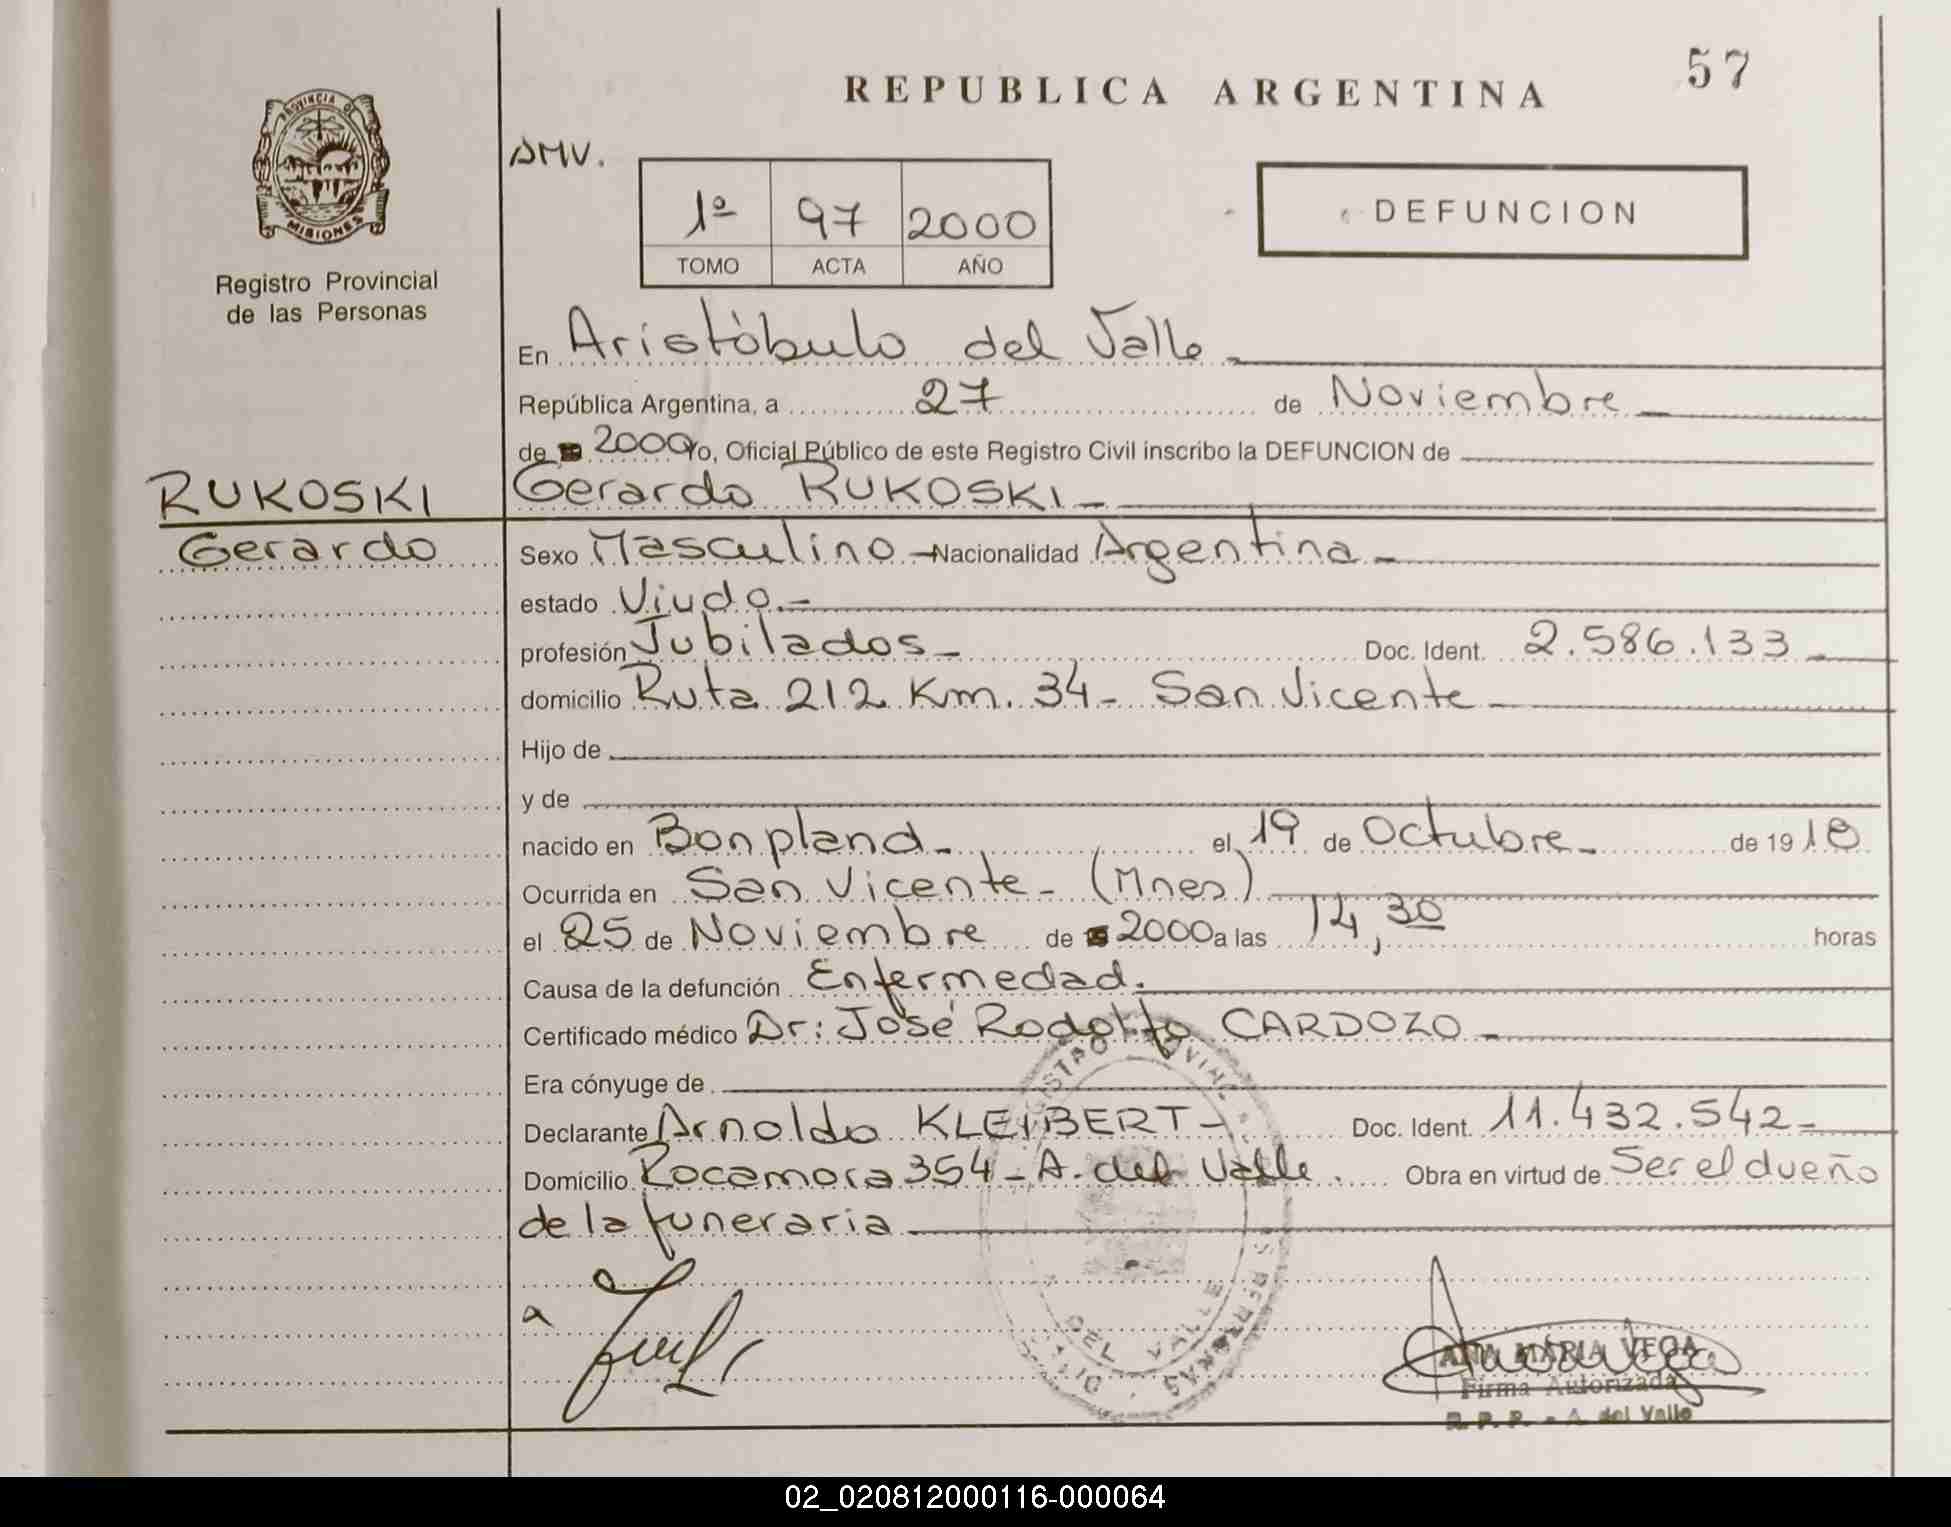 57
REPUBLICA ARGENTINA
PROVINCIA DE
MISIONES
Registro Provincial
de las Personas
AMV.
1º 97 2000
TOMO ACTA AÑO
DEFUNCION
En Aristóbulo del Valle
República Argentina, a 27 de Noviembre
de 2000 Yo, Oficial Público de este Registro Civil inscribo la DEFUNCION de
RUKOSKI
Gerardo
Gerardo RUKOSKI
Sexo Masculino - Nacionalidad Argentina
estado Viudo.-
profesión Jubilados - Doc. Ident. 2.586.133
domicilio Ruta 212 Km. 34 - San Vicente
Hijo de
y de
nacido en Bonpland - el 19 de Octubre - de 1918
Ocurrida en San Vicente - (Mnes)
el 25 de Noviembre de 2000 a las 14,30 horas
Causa de la defunción Enfermedad.
Certificado médico Dr: José Rodolfo CARDOZO -
Era cónyuge de
Declarante Arnoldo KLEIBERT - Doc. Ident. 11.432.542 -
Domicilio Rocamora 354 - A. del Valle. Obra en virtud de Ser el dueño
de la funeraria
DEL VALLE
ANA MARIA VEGA
Firma Autorizada
R. P. P. - A. del Valle
02_020812000116-000064